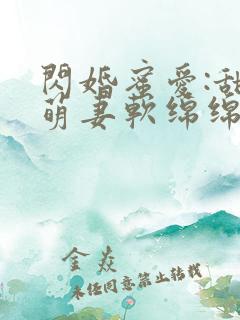 閃婚蜜愛:甜
萌妻軟綿綿
金焱
未经同意禁止转载